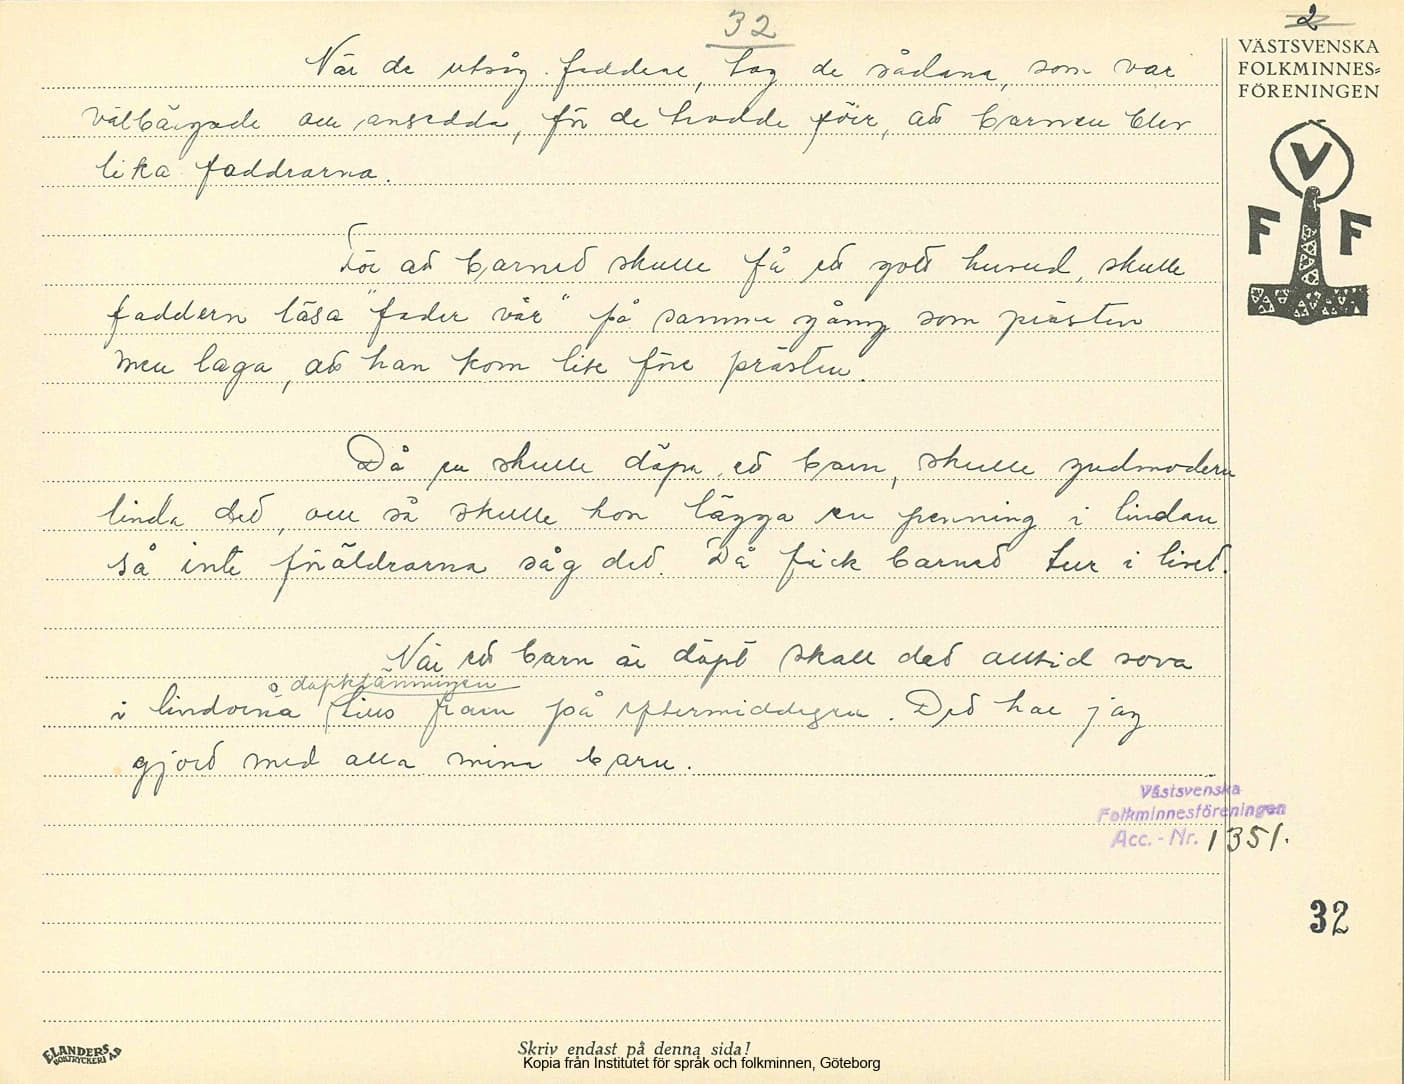 32
2
VÄSTSVENSKA
FOLKMINNES=
FÖRENINGEN
När de utsåg faddrar, tog de sådana, som var
välbärgade och ansedda, för de trodde förr, att barnen blev
lika faddrarna.
V
F F
För att barnet skulle få ett gott huvud, skulle
faddern läsa "fader vår" på samma gång som prästen
men laga, att han kom lite före prästen.
Då en skulle döpa ett barn, skulle gudmodern
linda det, och så skulle hon lägga en penning i lindan
så inte föräldrarna såg det. Då fick barnet tur i livet.
När ett barn är döpt skall det alltid sova
i lindorna å döpklänningen tills fram på eftermiddagen. Det har jag
gjort med alla mina barn.
Västsvenska
Folkminnesföreningen
Acc. - Nr. 1351.
32
ELANDERS
BOKTRYCKERI AB
Skriv endast på denna sida!
Kopia från Institutet för språk och folkminnen, Göteborg